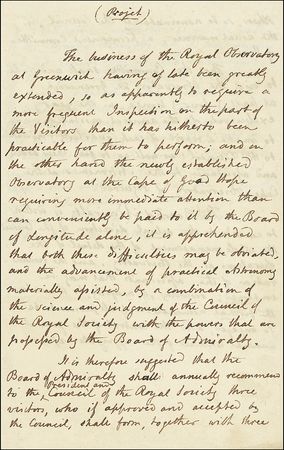 (Projet)
The business of the Royal Observatory
at Greenwich having of late been greatly
extended, so as apparently to require a
more frequent Inspection on the part of
the Visitors than it has hitherto been
practicable for them to perform; and on
the other hand the newly established
Observatory at the Cape of Good Hope
requiring more immediate attention than
can conveniently be paid to it by the Board
of Longitude alone, it is apprehended
that both these difficulties may be obviated,
and the advancement of practical Astronomy
materially assisted, by a combination of
the science and judgment of the Council of
the Royal Society with the powers that are
possessed by the Board of Admiralty.
It is therefore suggested that the
Board of Admiralty shall annually recommend
President and
to the Council of the Royal Society three
visitors, who if approved and accepted by
the Council, shall form, together with three